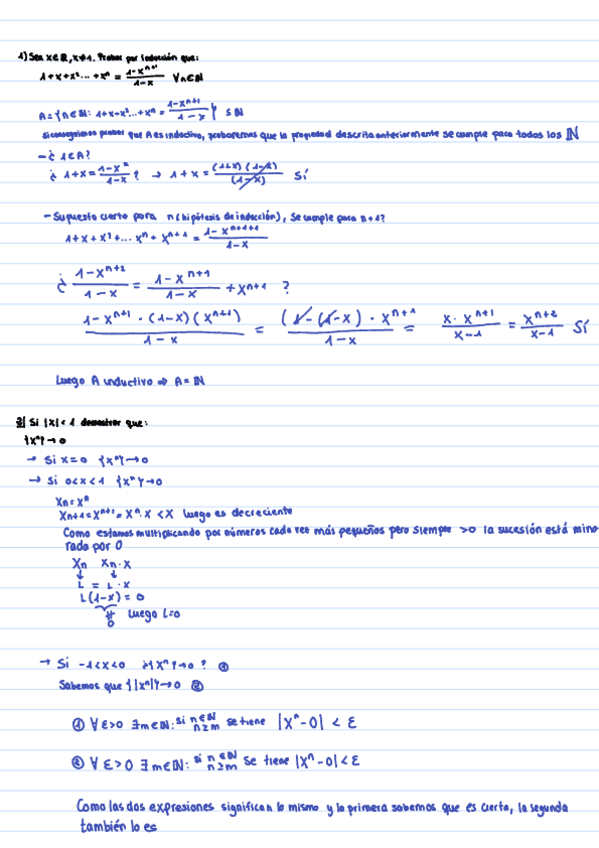 1) Sea x∈ℝ, x≠1. Probar por inducción que:
1+x+x²...+xⁿ = (1-xⁿ⁺¹)/(1-x) ∀n∈ℕ
A={n∈ℕ: 1+x+x²...+xⁿ = (1-xⁿ⁺¹)/(1-x)} ⊆ℕ
Si conseguimos probar que A es inductivo, probaremos que la propiedad descrita anteriormente se cumple para todos los ℕ
-¿ 1∈A?
¿ 1+x = (1-x²)/(1-x) ? → 1+x = (1+x)(1-x)/(1-x) Sí
- Supuesto cierto para n (hipótesis de inducción), Se cumple para n+1?
1+x+x²+... xⁿ+ xⁿ⁺¹ = (1-xⁿ⁺¹⁺¹)/(1-x)
¿ (1-xⁿ⁺²)/(1-x) = (1-xⁿ⁺¹)/(1-x) + xⁿ⁺¹ ?
(1-xⁿ⁺¹ · (1-x)(xⁿ⁺¹))/(1-x) = ((1-(1-x) · xⁿ⁺¹)/(1-x) = (x· xⁿ⁺¹)/(x-1) = xⁿ⁺²/(x-1) Sí
Luego A inductivo ⇒ A=ℕ
Si |x|<1 demostrar que:
{xⁿ}→0
→ Si x=0 {xⁿ}→0
→ Si 0<x<1 {xⁿ}→0
Xn=xⁿ
Xn+1=Xⁿ⁺¹= Xⁿ· X <X luego es decreciente
Como estamos multiplicando por números cada vez más pequeños pero siempre >0 la sucesión está mino
rada por 0
Xn Xn·x
↓ ↓
L = L·x
L(1-x)=0
≠ Luego L=0
0
→ Si -1<x<0 ¿{xⁿ}→0 ? ①
Sabemos que {|xⁿ|}→0 ②
① ∀ε>0 ∃m∈ℕ: si n∈ℕ n≥m se tiene |xⁿ-0| < ε
② ∀ε>0 ∃m∈ℕ: si n∈ℕ n≥m Se tiene |xⁿ-0|<ε
Como las dos expresiones significan lo mismo y la primera sabemos que es cierta, la segunda
también lo es